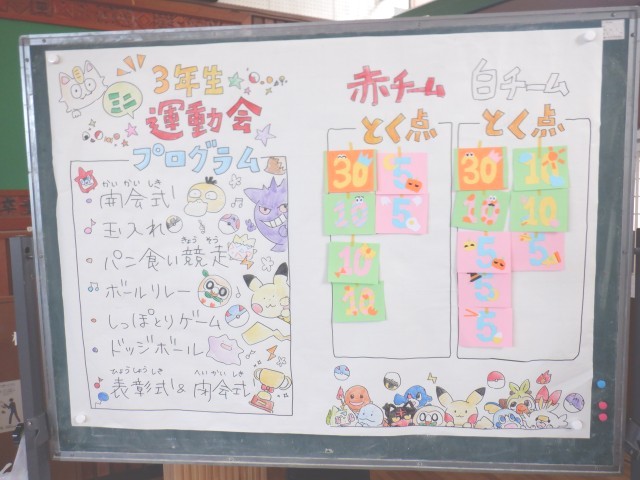 3年生
ミニ
運動会
プログラム
かいかいしき
開会式
玉入れ
きょうそう
パン食い競走
ボールリレー
しっぽとりゲーム
ドッジボール
ひょうしょうしき へいかいしき
表彰式&閉会式
赤チーム
とく点
30 5
10 5
10
10
白チーム
とく点
30 10
10 10
5 5
5
5